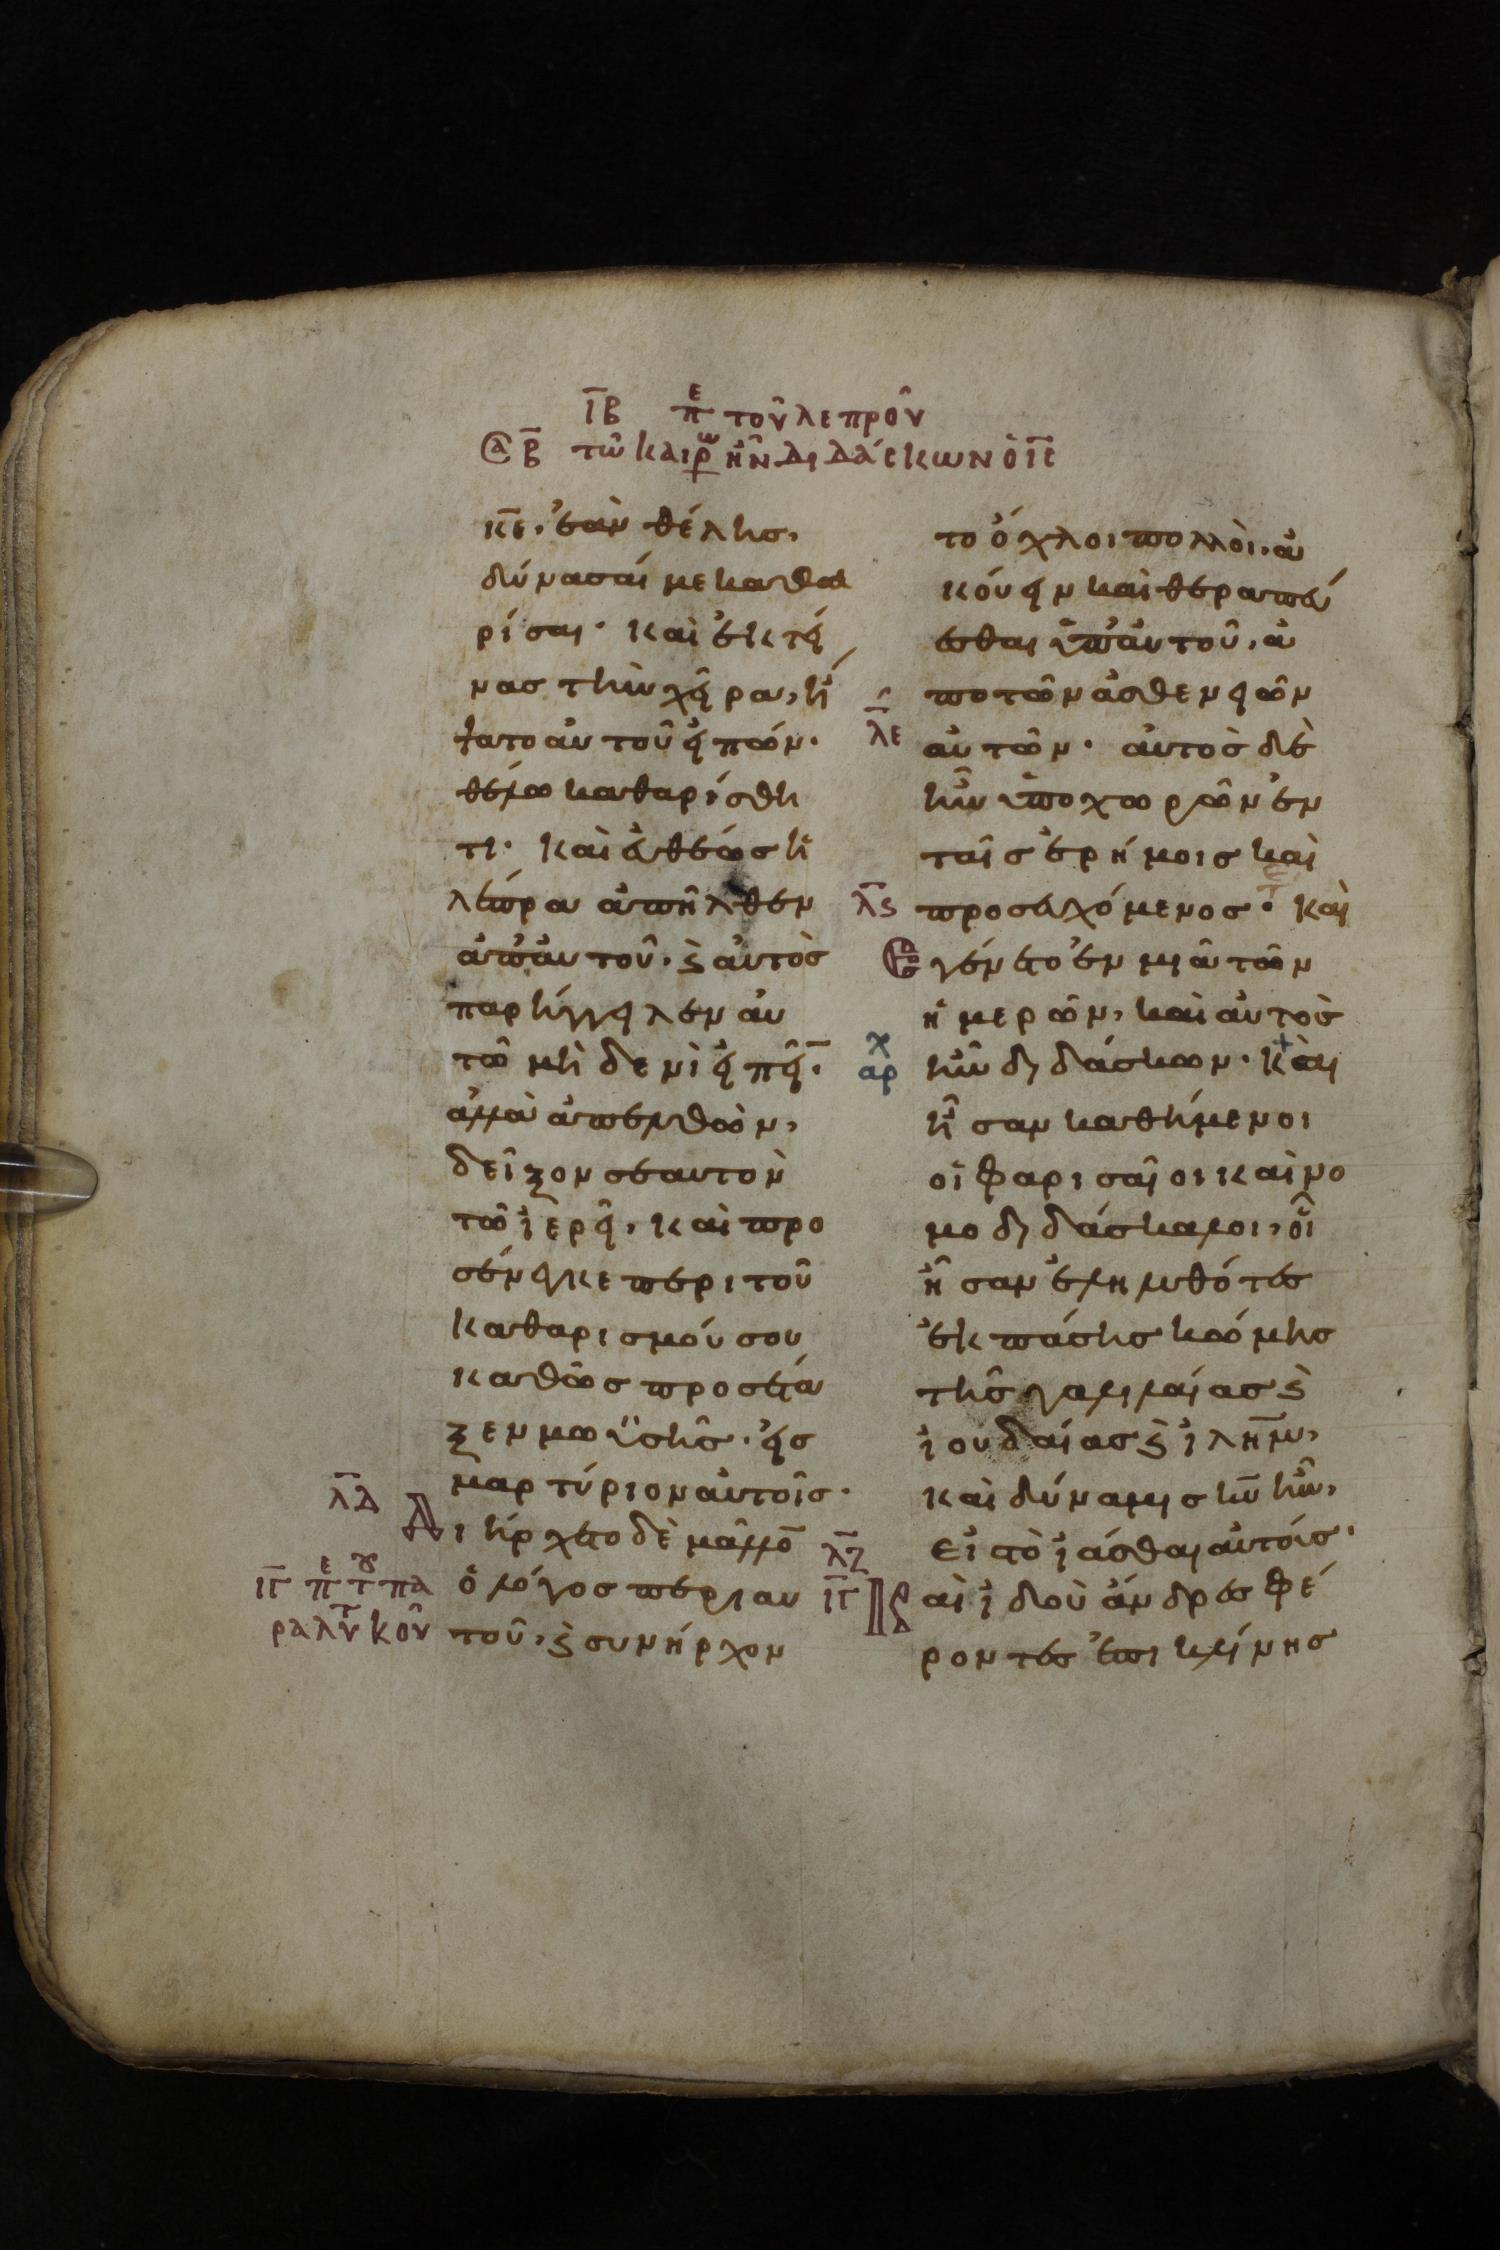 ιβ πε τοῦ λεπροῦ
β τῶ καιρῶ ἦν διδάσκων ὁ ις
κε, ἐὰν θέλης,
δύνασαί με καθα
ρίσαι· καὶ ἐκτεί
νας τὴν χεῖρα, ἥ
ψατο αὐτοῦ εἰπών·
θέλω καθαρίσθη
τι· καὶ εὐθέως ἡ
λέπρα ἀπῆλθεν
ἀπ' αὐτοῦ. ϗ αὐτὸς
παρήγγειλεν αὐ
τῶ μὴ δενὶ εἰπεῖ·
ἀλλὰ ἀπελθὼν,
δεῖξον σεαυτὸν
τῶ ἱερεῖ, καὶ προ
σένεγκε περι τοῦ
καθαρισμού σου
καθὼς προσέτα
ξεν μωϋσῆς· εἰς
μαρτύριον αὐτοῖς·
λδ
Διήρχετο δὲ μᾶλλο
ιγ πε τ πα
ραλυτ κοῦ
ὁ λόγος περι αυ
τοῦ, ϗ συνήρχον
το ὄχλοι πολλοὶ, ἀ
κούειν καὶ θεραπεύ
εσθαι ὑπ' αὐτοῦ, ἀ
πο τῶν ἀσθενειῶν
λε
αὐτῶν· αὐτὸς δὲ
ἦν ὑποχωρῶν ἐν
ταῖς ἐρήμοις καὶ
λϛ προσευχόμενος· καὶ
Ἐγένετο ἐν μιᾶ τῶν
ἡμερῶν, καὶ αὐτὸς
αρχ ἦν διδάσκων· Καὶ
ἦσαν καθήμενοι
οἱ φαρισαῖοι καὶ νο
μοδιδάσκαλοι, οἳ
ἦσαν ἐληλυθότες
ἐκ πάσης κώμης
τῆς γαλιλαίας ϗ
ἰουδαίας ϗ ἰλημ,
καὶ δύναμις κυ ἦν,
εἰς τὸ ἰάσθαι αὐτούς·
λζ
ιγ Καὶ ἰδοὺ ἄνδρες φέ
ροντες ἐπι κλίνης